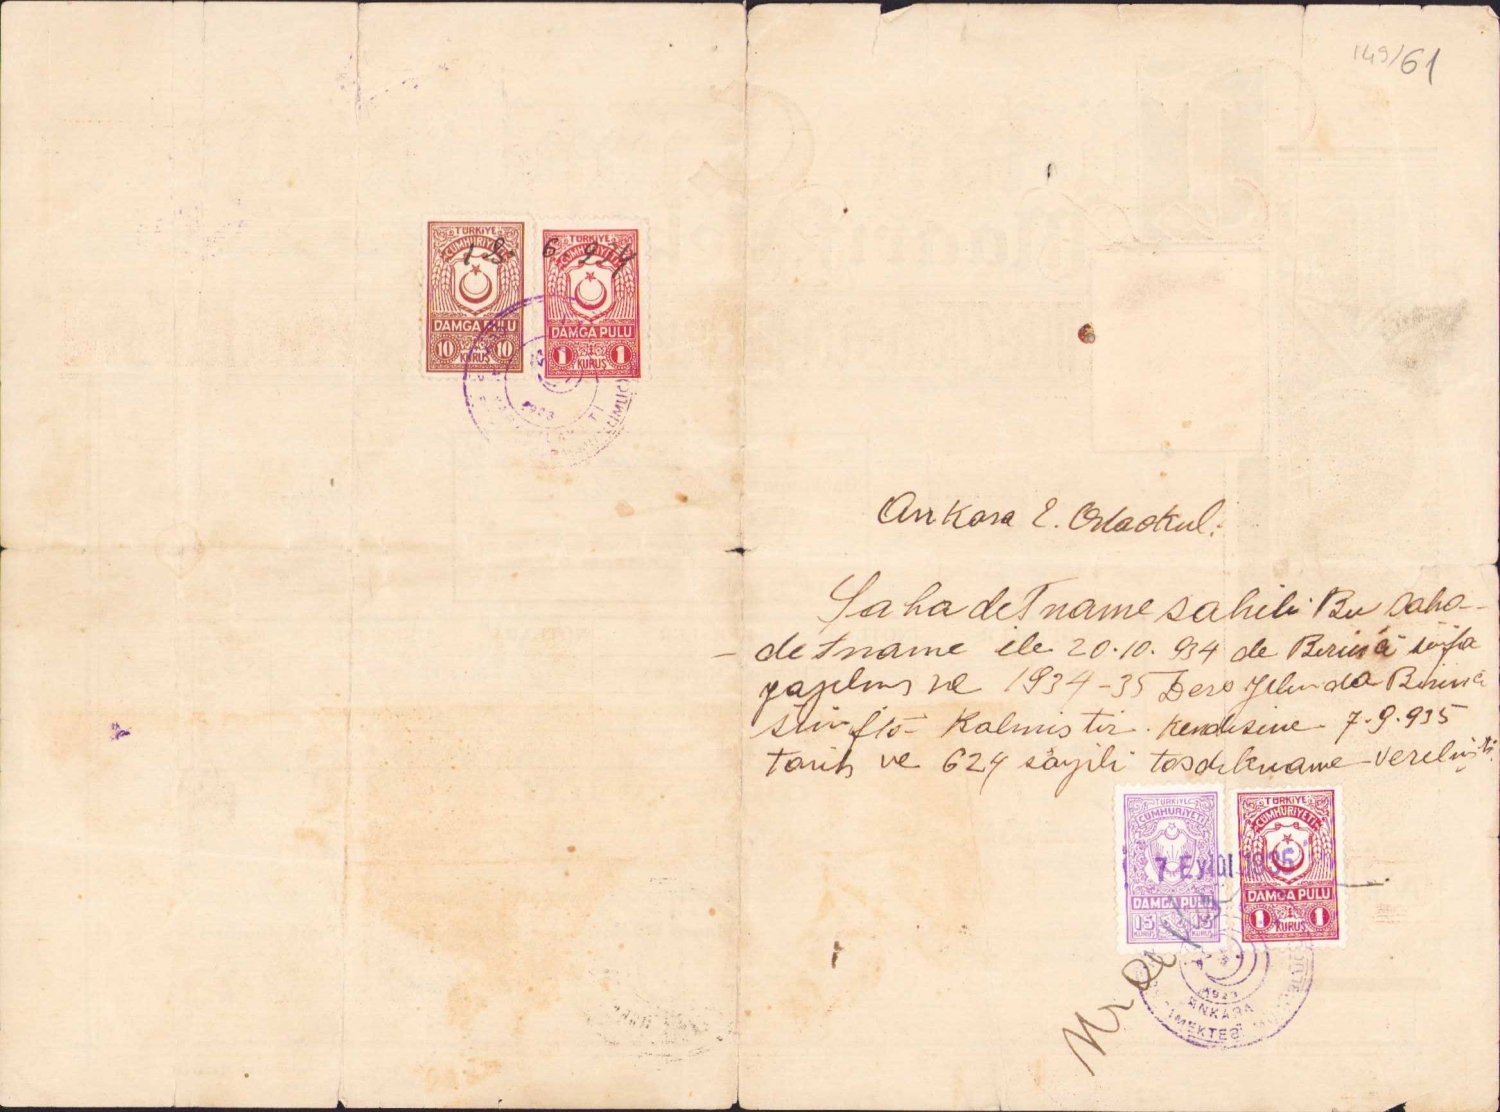 149/61
TÜRKİYE
CUMHURİYETİ
DAMGA PULU
10 KURUŞ 10
TÜRKİYE
CUMHURİYETİ
DAMGA PULU
1 1 KURUŞ 1
1923
Ankara 2. Ortaokul:
Şahadetname sahibi Bu şaha-
detname ile 20.10.934 de Birinci sınıfa
yazılmış ve 1934-35 Ders yılında Birinci
sınıfta kalmıştır. Kendisine 7.9.935
tarih ve 624 sayılı tasdikname verilmiştir.
TÜRKİYE
CUMHURİYETİ
DAMGA PULU
15 KURUŞ 15 KURUŞ
TÜRKİYE
CUMHURİYETİ
DAMGA PULU
1 1 KURUŞ 1
7 Eylül 1935
1923
ANKARA
MEKTEB